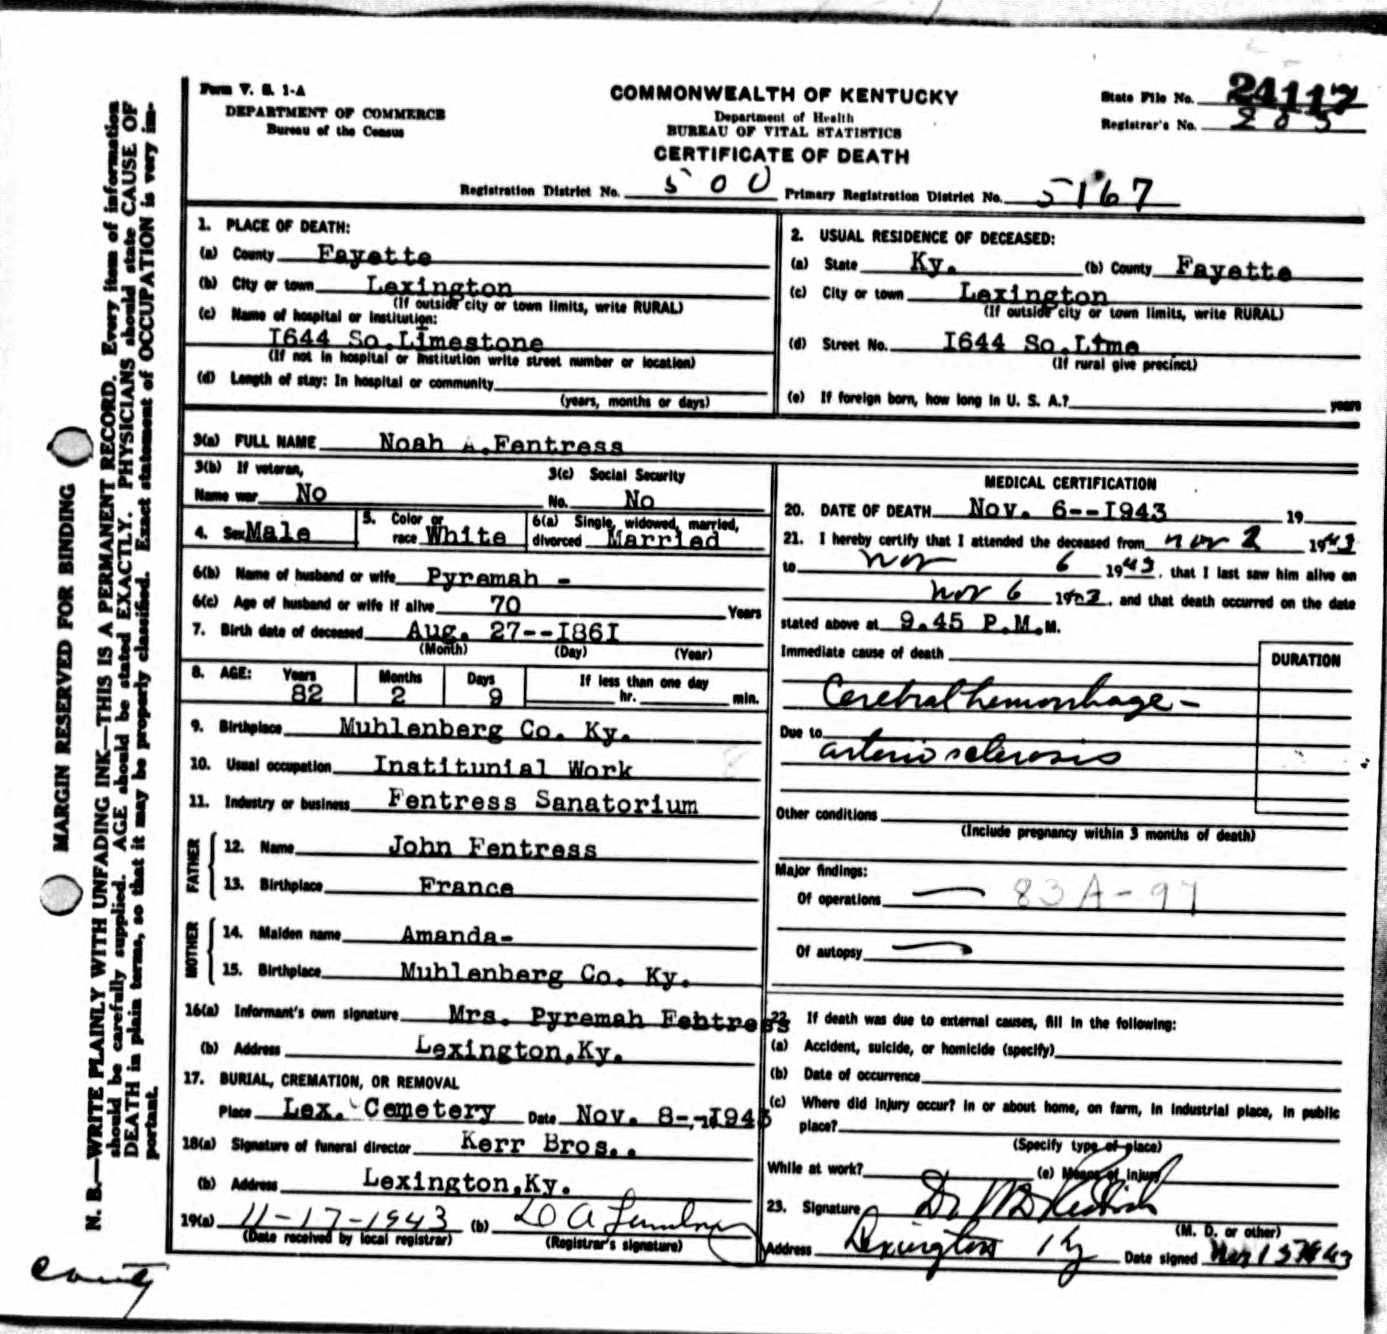 Form V. S. 1-A
DEPARTMENT OF COMMERCE
Bureau of the Census
COMMONWEALTH OF KENTUCKY
Department of Health
BUREAU OF VITAL STATISTICS
CERTIFICATE OF DEATH
State File No. 24117
Registrar's No. 205
Registration District No. 500 Primary Registration District No. 5167
MARGIN RESERVED FOR BINDING
N. B.—WRITE PLAINLY WITH UNFADING INK—THIS IS A PERMANENT RECORD. Every item of information
should be carefully supplied. AGE should be stated EXACTLY. PHYSICIANS should state CAUSE OF
DEATH in plain terms, so that it may be properly classified. Exact statement of OCCUPATION is very im-
portant.
1. PLACE OF DEATH:
(a) County Fayette
(b) City or town Lexington
(If outside city or town limits, write RURAL)
(c) Name of hospital or institution:
I644 So.Limestone
(If not in hospital or institution write street number or location)
(d) Length of stay: In hospital or community
(years, months or days)
2. USUAL RESIDENCE OF DECEASED:
(a) State Ky. (b) County Fayette
(c) City or town Lexington
(If outside city or town limits, write RURAL)
(d) Street No. I644 So.Lime
(If rural give precinct)
(e) If foreign born, how long in U. S. A.? years
3(a) FULL NAME Noah A.Fentress
3(b) If veteran,
Name war No
3(c) Social Security
No. No
4. Sex Male
5. Color or
race White
6(a) Single, widowed, married,
divorced Married
6(b) Name of husband or wife Pyremah -
6(c) Age of husband or wife if alive 70 Years
7. Birth date of deceased Aug. 27--I86I
(Month) (Day) (Year)
8. AGE: Years Months Days If less than one day
82 2 9 hr. min.
9. Birthplace Muhlenberg Co. Ky.
10. Usual occupation Institunial Work
11. Industry or business Fentress Sanatorium
FATHER
12. Name John Fentress
13. Birthplace France
MOTHER
14. Maiden name Amanda-
15. Birthplace Muhlenberg Co. Ky.
16(a) Informant's own signature Mrs. Pyremah Febtress
(b) Address Lexington,Ky.
17. BURIAL, CREMATION, OR REMOVAL
Place Lex. Cemetery Date Nov. 8--I943
18(a) Signature of funeral director Kerr Bros..
(b) Address Lexington,Ky.
19(a) 11-17-1943 (b)
(Date received by local registrar) (Registrar's signature)
MEDICAL CERTIFICATION
20. DATE OF DEATH Nov. 6--I943 19
21. I hereby certify that I attended the deceased from Nov 2 1943
to Nov 6 1943, that I last saw him alive on
Nov 6 1943, and that death occurred on the date
stated above at 9.45 P.M.M.
Immediate cause of death
DURATION
Cerebral hemorrhage-
Due to
arterio sclerosis
Other conditions
(Include pregnancy within 3 months of death)
Major findings:
Of operations — 83A-97
Of autopsy —
22. If death was due to external causes, fill in the following:
(a) Accident, suicide, or homicide (specify)
(b) Date of occurrence
(c) Where did injury occur? In or about home, on farm, in industrial place, in public
place?
(Specify type of place)
While at work? (e) Means of injury
23. Signature Dr
(M. D. or other)
Address Lexington Ky Date signed
County